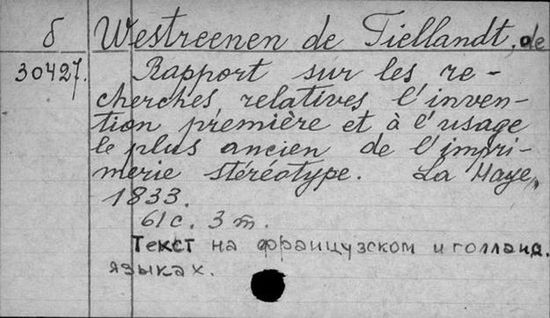 б Westreenen de Tiellandt, de
30427. Rapport sur les re-
cherches relatives l'inven-
tion première et à l'usage
le plus ancien de l'impri-
merie stéréotype. La Haye,
1833.
61 с. 3 т.
Текст на французском и голланд.
языках.